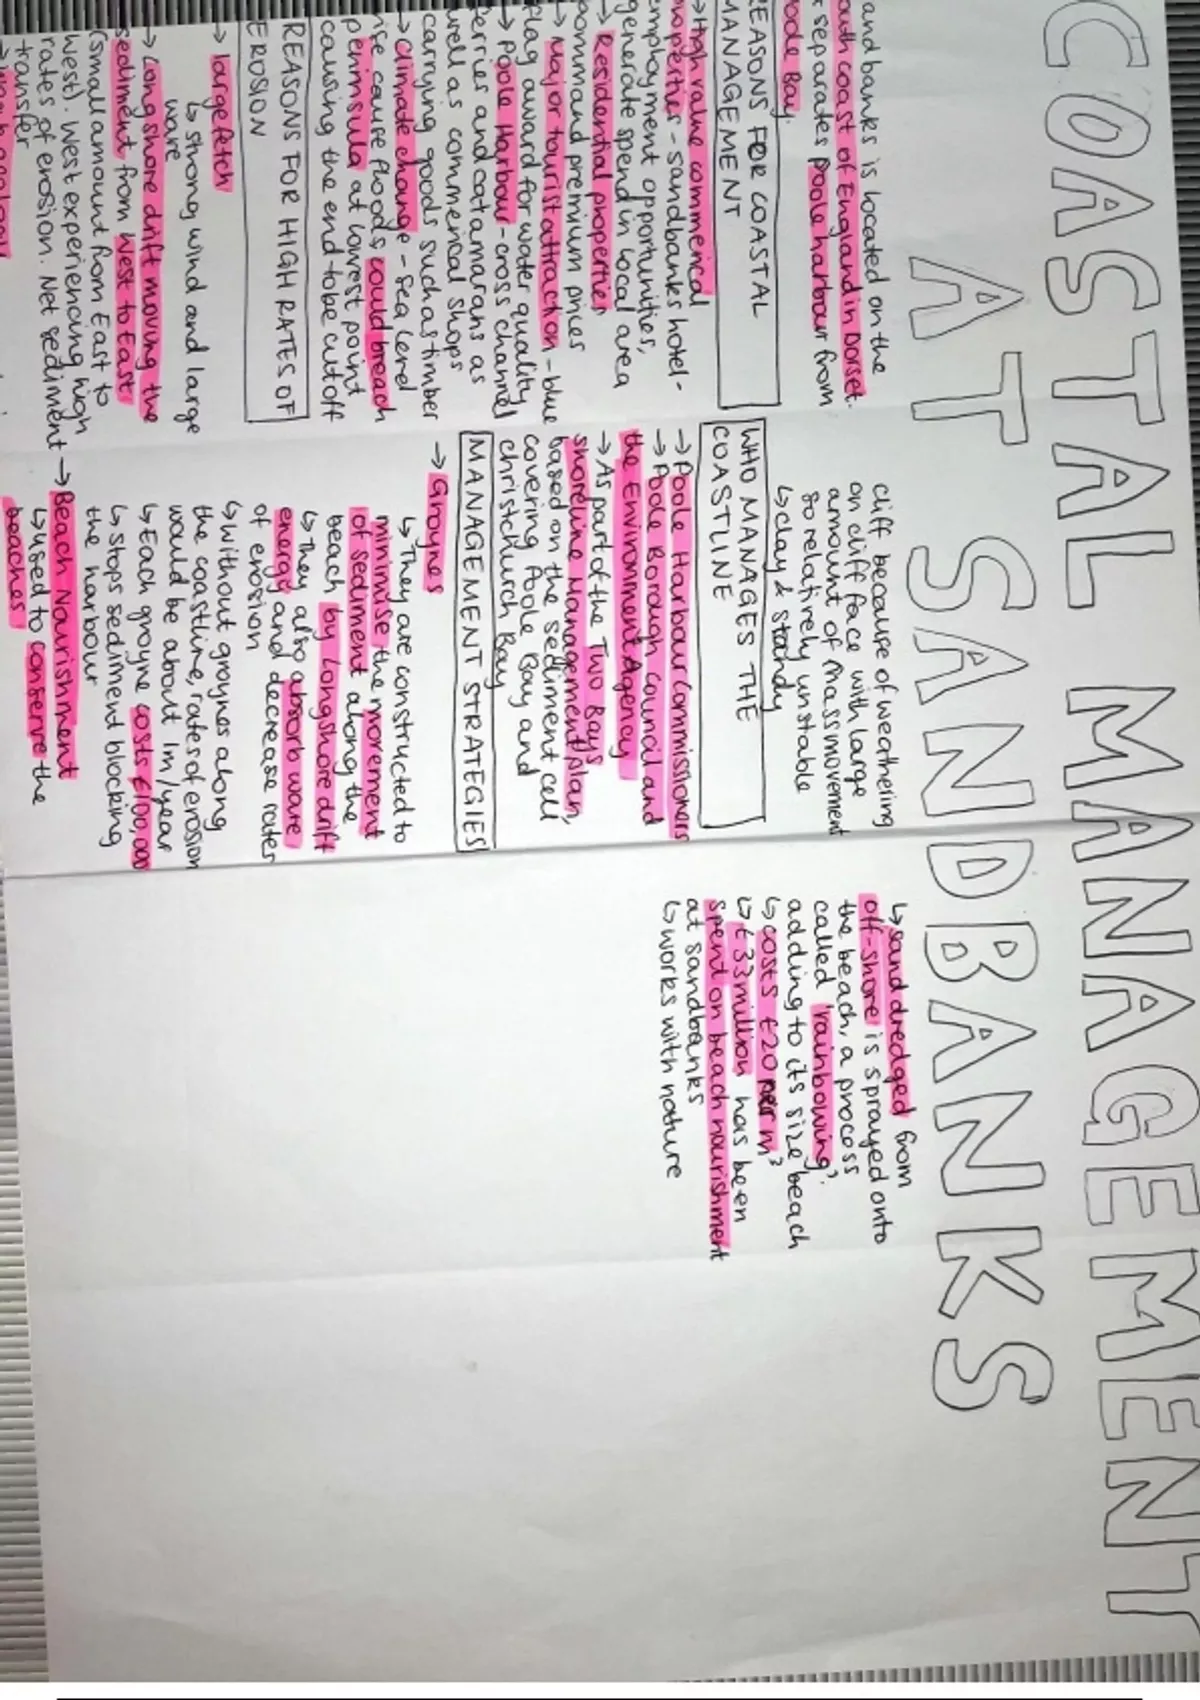 COASTAL MANAGEMENT
AT SANDBANKS
andbanks is located on the
outh coast of England in Dorset.
separates poole harbour from
oole Bay.
EASONS FOR COASTAL
MANAGEMENT
→High value commerical
roperties - sandbanks hotel-
employment opportunities,
generate spend in local area
→ Residential properties
command premium prices
→ Major tourist attraction - blue
flag award for water quality
→ poole Harbour - cross channel
ferries and catamarans as
well as commerical shops
carrying goods such as timber
→ climate change - sea level
rise cause floods, could breach
peninsula at lowest point
causing the end to be cut off
REASONS FOR HIGH RATES OF
EROSION
→ large fetch
↳ strong wind and large
wave
→ Longshore drift moving the
sediment from West to East
(small amount from East to
west). West experiencing high
rates of erosion. Net sediment
transfer
cliff because of weathering
on cliff face with large
amount of mass movement
so relatively unstable
↳ clay & standy
WHO MANAGES THE
COASTLINE
→ Poole Harbour Commissioners
→ Poole Borough council and
the Environment Agency
→ As part of the Two Bays
shoreline Management plan,
based on the sediment cell
covering Poole Bay and
christchurch Bay
MANAGEMENT STRATEGIES
→ Groynes
↳ They are constructed to
minimise the movement
of sediment along the
beach by Longshore drift
↳ They also absorb wave
energy and decrease rates
of erosion
↳ without groynes along
the coastline, rates of erosion
would be about 1m/year
↳ Each groyne costs £100,000
↳ Stops sediment blocking
the harbour
→ Beach Nourishment
↳ used to conserve the
beaches
↳ sand dredged from
off-shore is sprayed onto
the beach, a process
called 'rainbowing'.
adding to its size beach
↳ costs £20 per m³
↳ £33million has been
spent on beach nourishment
at sandbanks
↳ works with nature